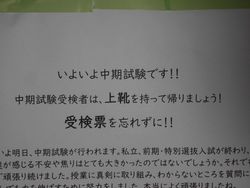 いよいよ中期試験です!!
中期試験受検者は、上靴を持って帰りましょう!
受検票を忘れずに!!
いよ明日、中期試験が行われます。私立、前期・特別選抜入試が終わり、
が感じる不安や焦りはとても大きかったのではないでしょうか。それで
頑張り続けました。授業に真剣に取り組み、わからないところを質問に
努力をしました。本当によく頑張りました。